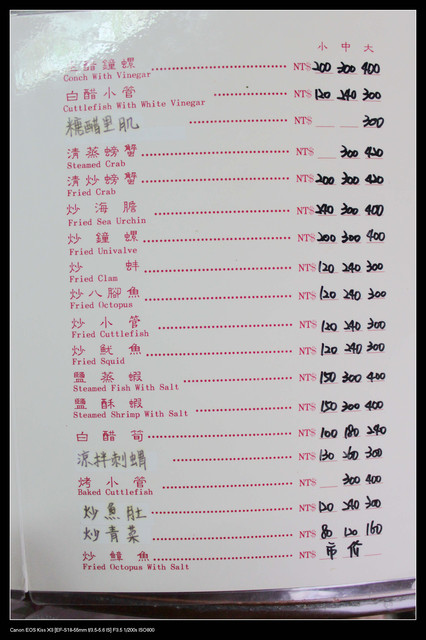 小 中 大
醋鐘螺 NT$ 200 300 400
Conch With Vinegar
白醋小管 NT$ 120 240 300
Cuttlefish With White Vinegar
糖醋里肌 NT$ 300
清蒸螃蟹 NT$ 300 420
Steamed Crab
清炒螃蟹 NT$ 200 300 420
Fried Crab
炒海膽 NT$ 240 300 400
Fried Sea Urchin
炒鐘螺 NT$ 200 300 400
Fried Univalve
炒蚌 NT$ 120 240 300
Fried Clam
炒八腳魚 NT$ 120 240 300
Fried Octopus
炒小管 NT$ 120 240 300
Fried Cuttlefish
炒魷魚 NT$ 120 240 300
Fried Squid
鹽蒸蝦 NT$ 150 300 400
Steamed Fish With Salt
鹽酥蝦 NT$ 150 300 400
Steamed Shrimp With Salt
白醋筍 NT$ 100 180 240
涼拌刺蝟 NT$ 130 260 300
烤小管 NT$ 300 400
Baked Cuttlefish
炒魚肚 NT$ 120 240 300
炒青菜 NT$ 80 120 160
炒鱆魚 NT$ 市 價
Fried Octopus With Salt
Canon EOS Kiss X3 [EF-S18-55mm f/3.5-5.6 IS] F3.5 1/200s ISO400